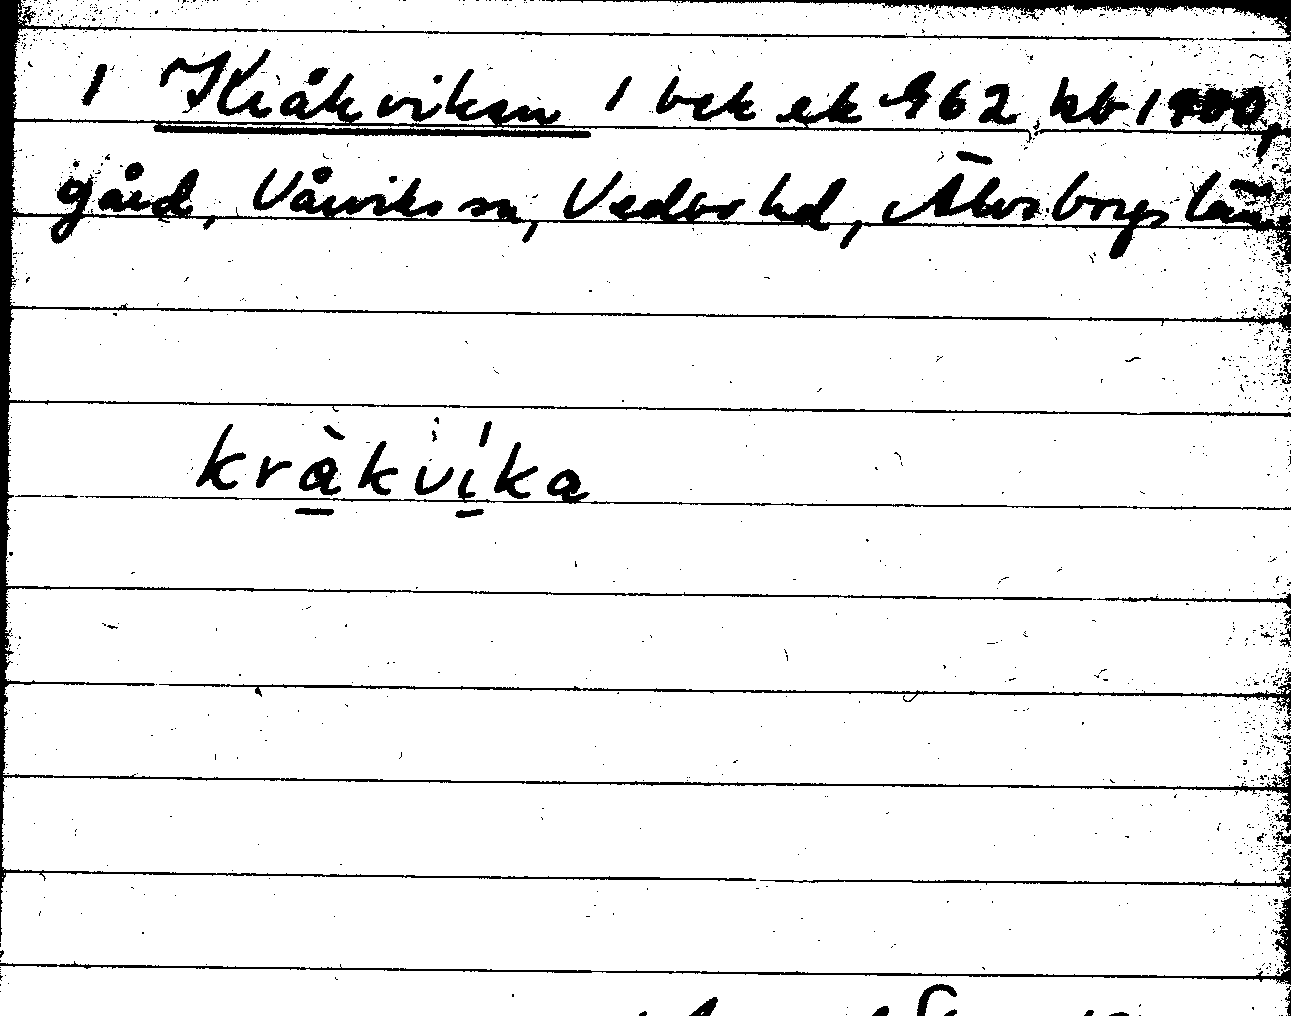 1 Kråkviken 1 bek ek 962 kb 1700,
gård, Vårviks sn, Vedbo hd, Älvsborgs län.
kràkvíka